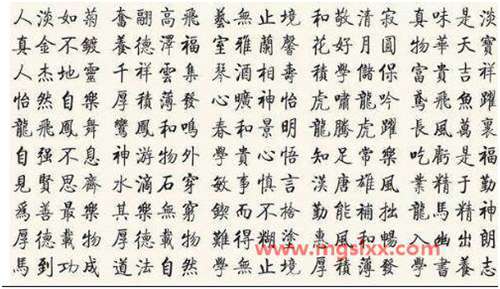 人淡如菊 奮翮高飛 藝無止境 和敬清寂 真味是淡
真金不鍍 養德澤福 室雅蘭馨 花好月圓 物華天寶
人杰地靈 千祥雲集 琴酒相壽 學儲 富貴吉祥
怡然自樂 厚積薄發 曠神怡 虎嘯龍吟 鳶飛魚躍
龍飛鳳舞 鸞鳳和鳴 春和景明 龍騰虎躍 長風萬裏
自强不息 神游物外 學貴心悟 知足常樂 吃虧是福
見賢思齊 水滴石穿 敏事慎言 漢唐雄風 業精于勤
爲善最樂 其樂無窮 鍥而不捨 勤能補拙 龍馬精神
厚德載物 厚德載物 難得糊塗 惠風和暢 入幽出朗
馬到功成 道法自然 學無止境 厚積薄發 學書養志
www.mgslxx.com